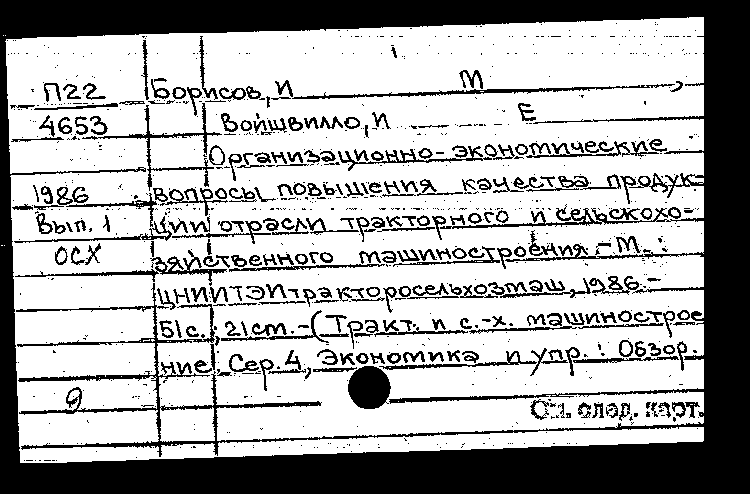 П22 Борисов, И М ,
4653 Войшвилло, И Е
Организационно-экономические
1986 вопросы повышения качества продук-
Вып. 1 ции отрасли тракторного и сельскохо-
ОСХ зяйственного машиностроения.-М.:
ЦНИИТЭИтракторосельхозмаш, 1986.-
51с.; 21см.-(Тракт. и с.-х. машинострое
ние. Сер. 4, Экономика и упр.: Обзор.
9
См. след. карт.